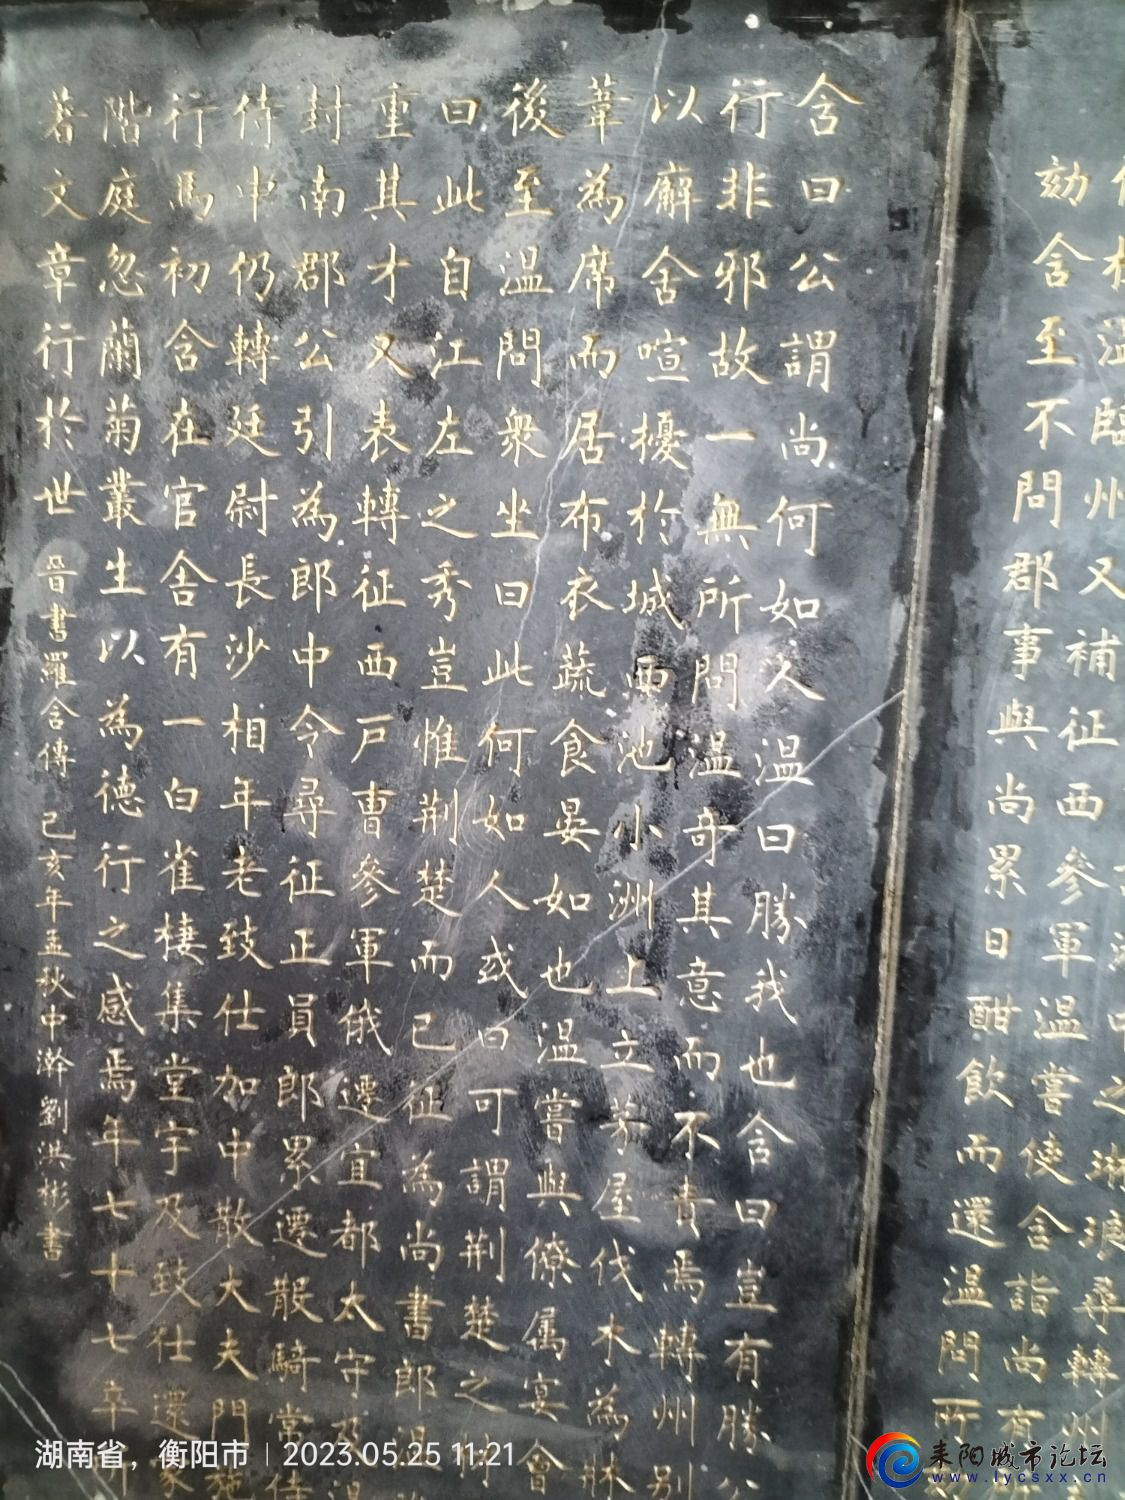 臨州又補征西參軍溫嘗使含詣尚有
劾含至不問郡事與尚累日酣飲而還溫問所
含曰公謂尚何如人溫曰勝我也含曰豈有勝公
行非邪故一無所問溫奇其意而不責焉轉州別
以廨舍喧擾於城西池小洲上立茅屋伐木為牀
葦為席而居布衣蔬食晏如也溫嘗與僚属宴會
後至溫問衆坐曰此何如人或曰可謂荆楚之
曰此自江左之秀豈惟荆楚而已征為尚書郎
重其才又表轉征西戸曹參軍俄遷宜都太守及
封南郡公引為郎中令尋征正員郎累遷散騎常侍
侍中仍轉廷尉長沙相年老致仕加中散大夫門
行馬初含在官舍有一白雀棲集堂宇及致仕還家
階庭忽蘭菊叢生以為德行之感焉年七十七卒
著文章行於世 晉書羅含傳 己亥年孟秋中澣劉洪彬書
湖南省，衡阳市 | 2023.05.25 11:21
耒阳城市论坛
www.lycsxx.cn